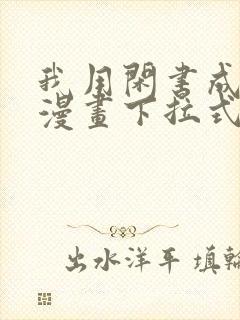 我用閑書成
漫畫下拉式
出水洋平 填輪